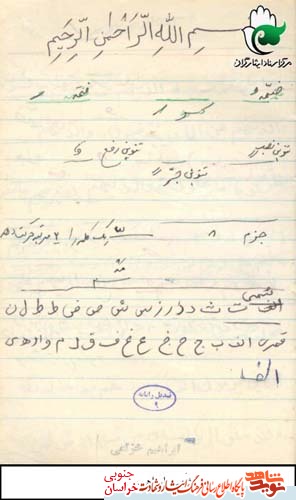 بسم الله الرحمن الرحیم
مرکز اسناد ایثارگران
ضمّه ُ
کسره ِ
فتحه َ
تنوین نصب ً
تنوین رفع ٌ
تنوین جرّ ٍ
جزم ْ
ّ یک کلمه را ۲ مرتبه
شمسی
ت ث د ذ ر ز س ش ص ض ط ظ ل ن
قمری الف ب ج ح خ ع غ ف ق ک م و ه ی
الفبا
تبدیل رایانه
ابراهیم
نوید شاهد
پایگاه اطلاع رسانی فرهنگ ایثار و شهادت
خراسان جنوبی